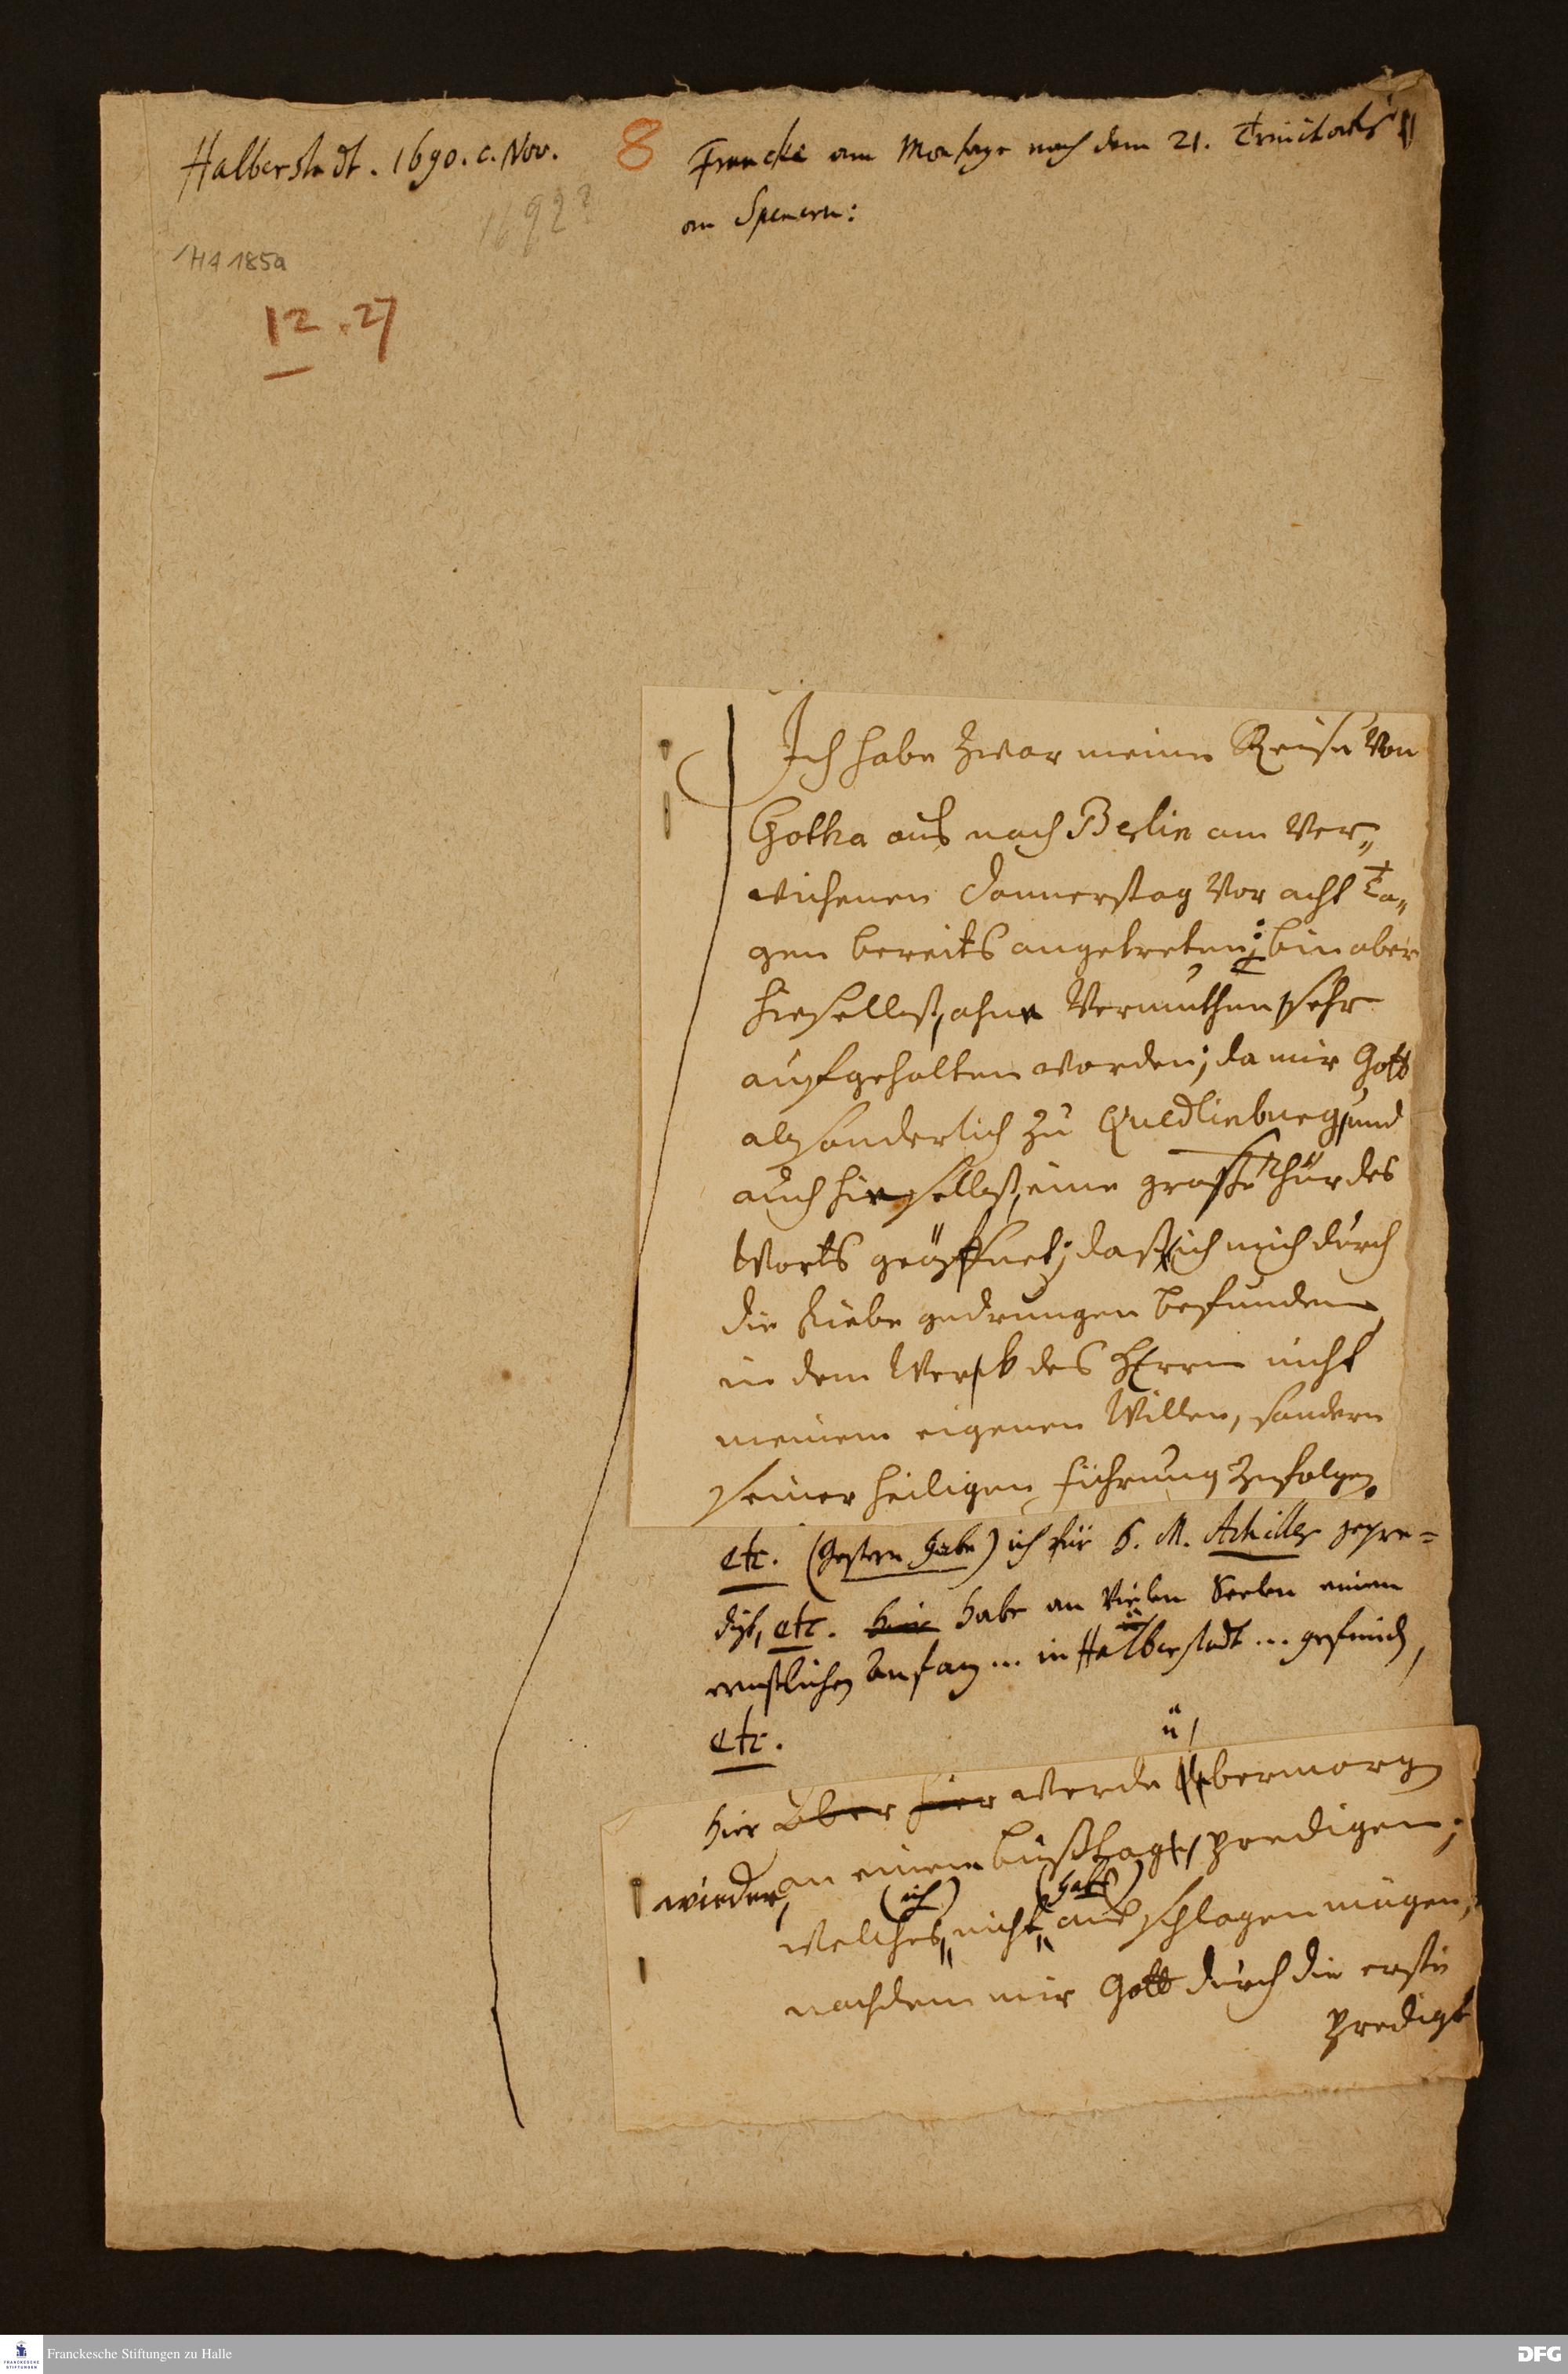 Halberstadt. 1690. c. Nov.
1692?
8
Francke am Montage nach dem 21. Trinitatis
an Spenern:
H4 185a
12.27
Ich habe zwar meine Reise von
Gotha aus nach Berlin am ver„
wichenen Donnerstag vor acht Ta„
gen bereits angetreten; bin aber
hieselbst, ohne Vermuthen sehr
aufgehalten worden; da mir Gott
absonderlich zu Quedlinburg, und
auch hieselbst, eine große Thür des
Worts geöffnet; daß ich mich durch
die Liebe gedrungen befunden,
in dem Werck des HErrn nicht
meinem eigenen Willen, sondern
seiner heiligen Führung zufolgen.
etc. (Gestern habe) ich für H. M. Achilles gepre=
digt, etc. hier habe an vielen Seelen einen
ernstlichen Anfang ... in Halberstadt ... gefunden,
etc.
ü
hier Aber hier werde übermorgen
wieder, an einem Bußtage, predigen;
(ich) (habe)
welches nicht ausschlagen mügen,
nachdem mir Gott durch die erste
Predigt
Franckesche Stiftungen zu Halle
FRANCKESCHE
STIFTUNGEN
DFG